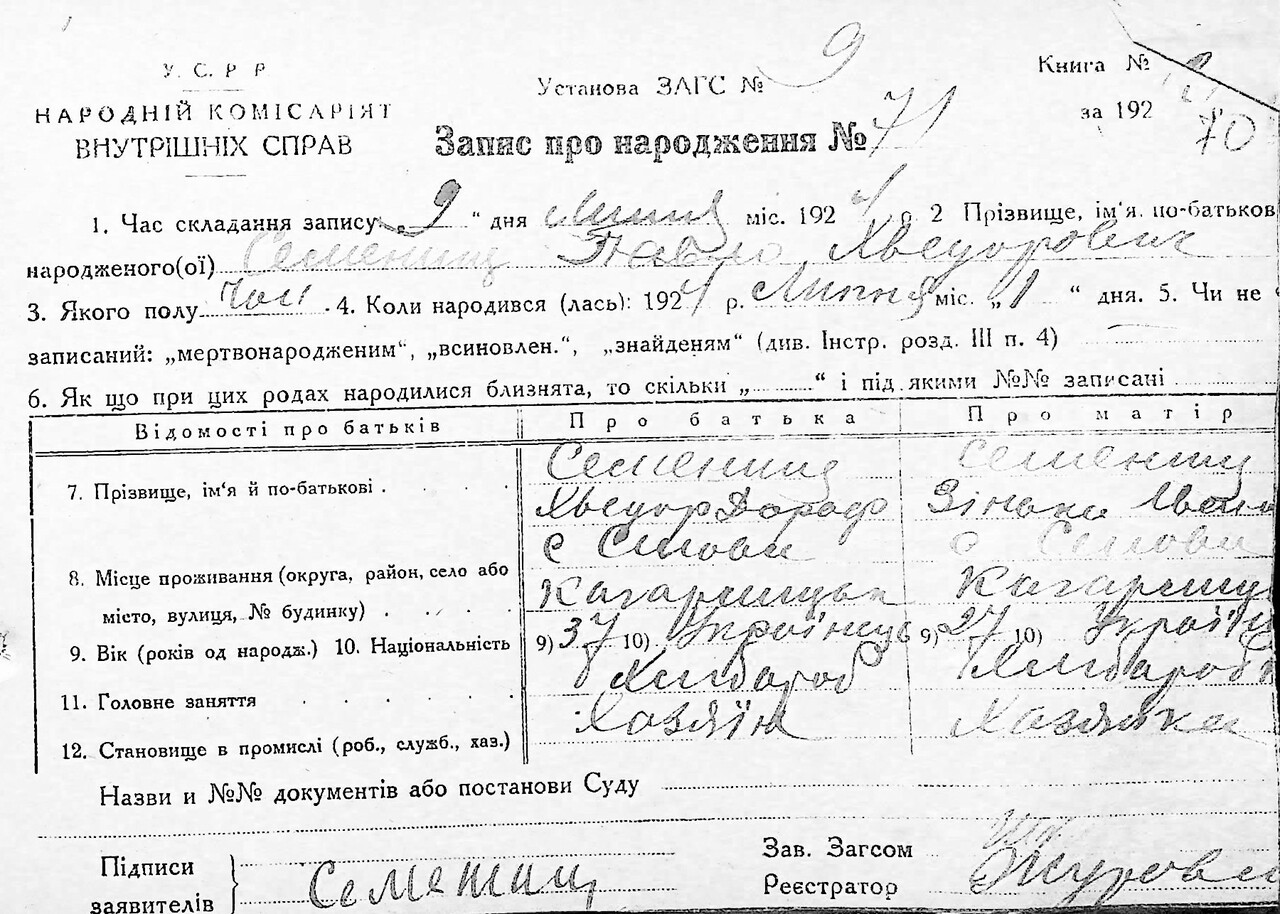 У. С. Р Р
НАРОДНІЙ КОМІСАРІЯТ
ВНУТРІШНІХ СПРАВ
Установа ЗАГС № 9
Книга №
за 192
70
Запис про народження № 71
1. Час складання запису „9“ дня Липня міс. 192 р. 2 Прізвище, ім'я, по-батькові
народженого(ої) Семенищ Павло Хведорович
3. Якого полу чол. 4. Коли народився (лась): 192 р. Липня міс. „1“ дня. 5. Чи не
записаний: „мертвонародженим“, „всиновлен.“, „знайденям“ (див. Інстр. розд. III п. 4)
6. Як що при цих родах народилися близнята, то скільки „ “ і під якими №№ записані
Відомості про батьків Про батька Про матір
7. Прізвище, ім'я й по-батькові Семенищ Семенищ
Хведор Дораф Зінька
8. Місце проживання (округа, район, село або с с
місто, вулиця, № будинку)
9. Вік (років од народж.) 10. Національність 9) 37 10) Українець 9) 27 10) Україн
11. Головне заняття Хлібароб Хлібароб
12. Становище в промислі (роб., служб., хаз.) Хазяїн Хазяйка
Назви и №№ документів або постанови Суду
Підписи
заявителів
Семенищ
Зав. Загсом
Реєстратор